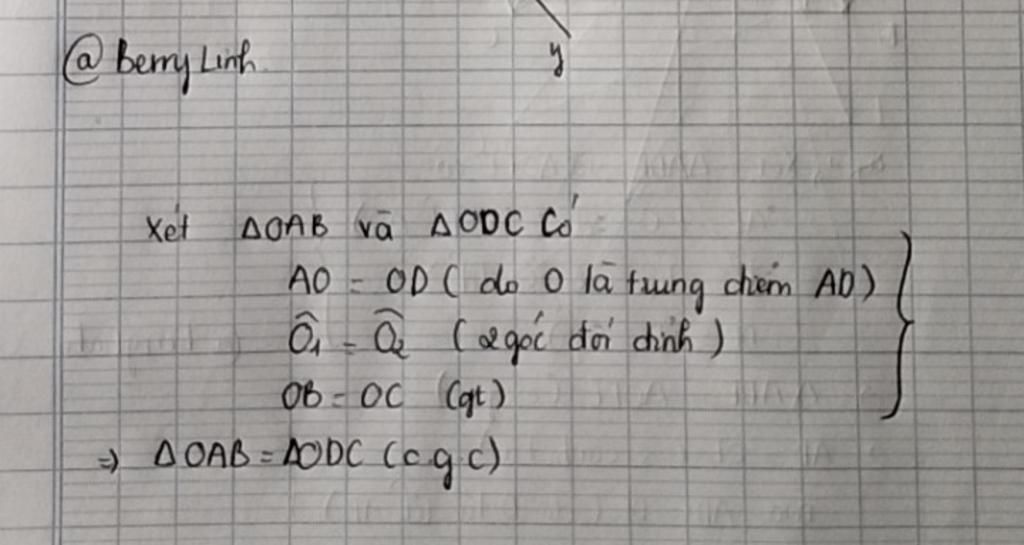 @ Berry Linh
y
Xét ΔOAB và ΔODC Có
AO = OD ( do O là trung điểm AD )
Ô₁ = Ô₂ ( 2 góc đối đỉnh )
OB = OC (gt)
=> ΔOAB = ΔODC (c.g.c)